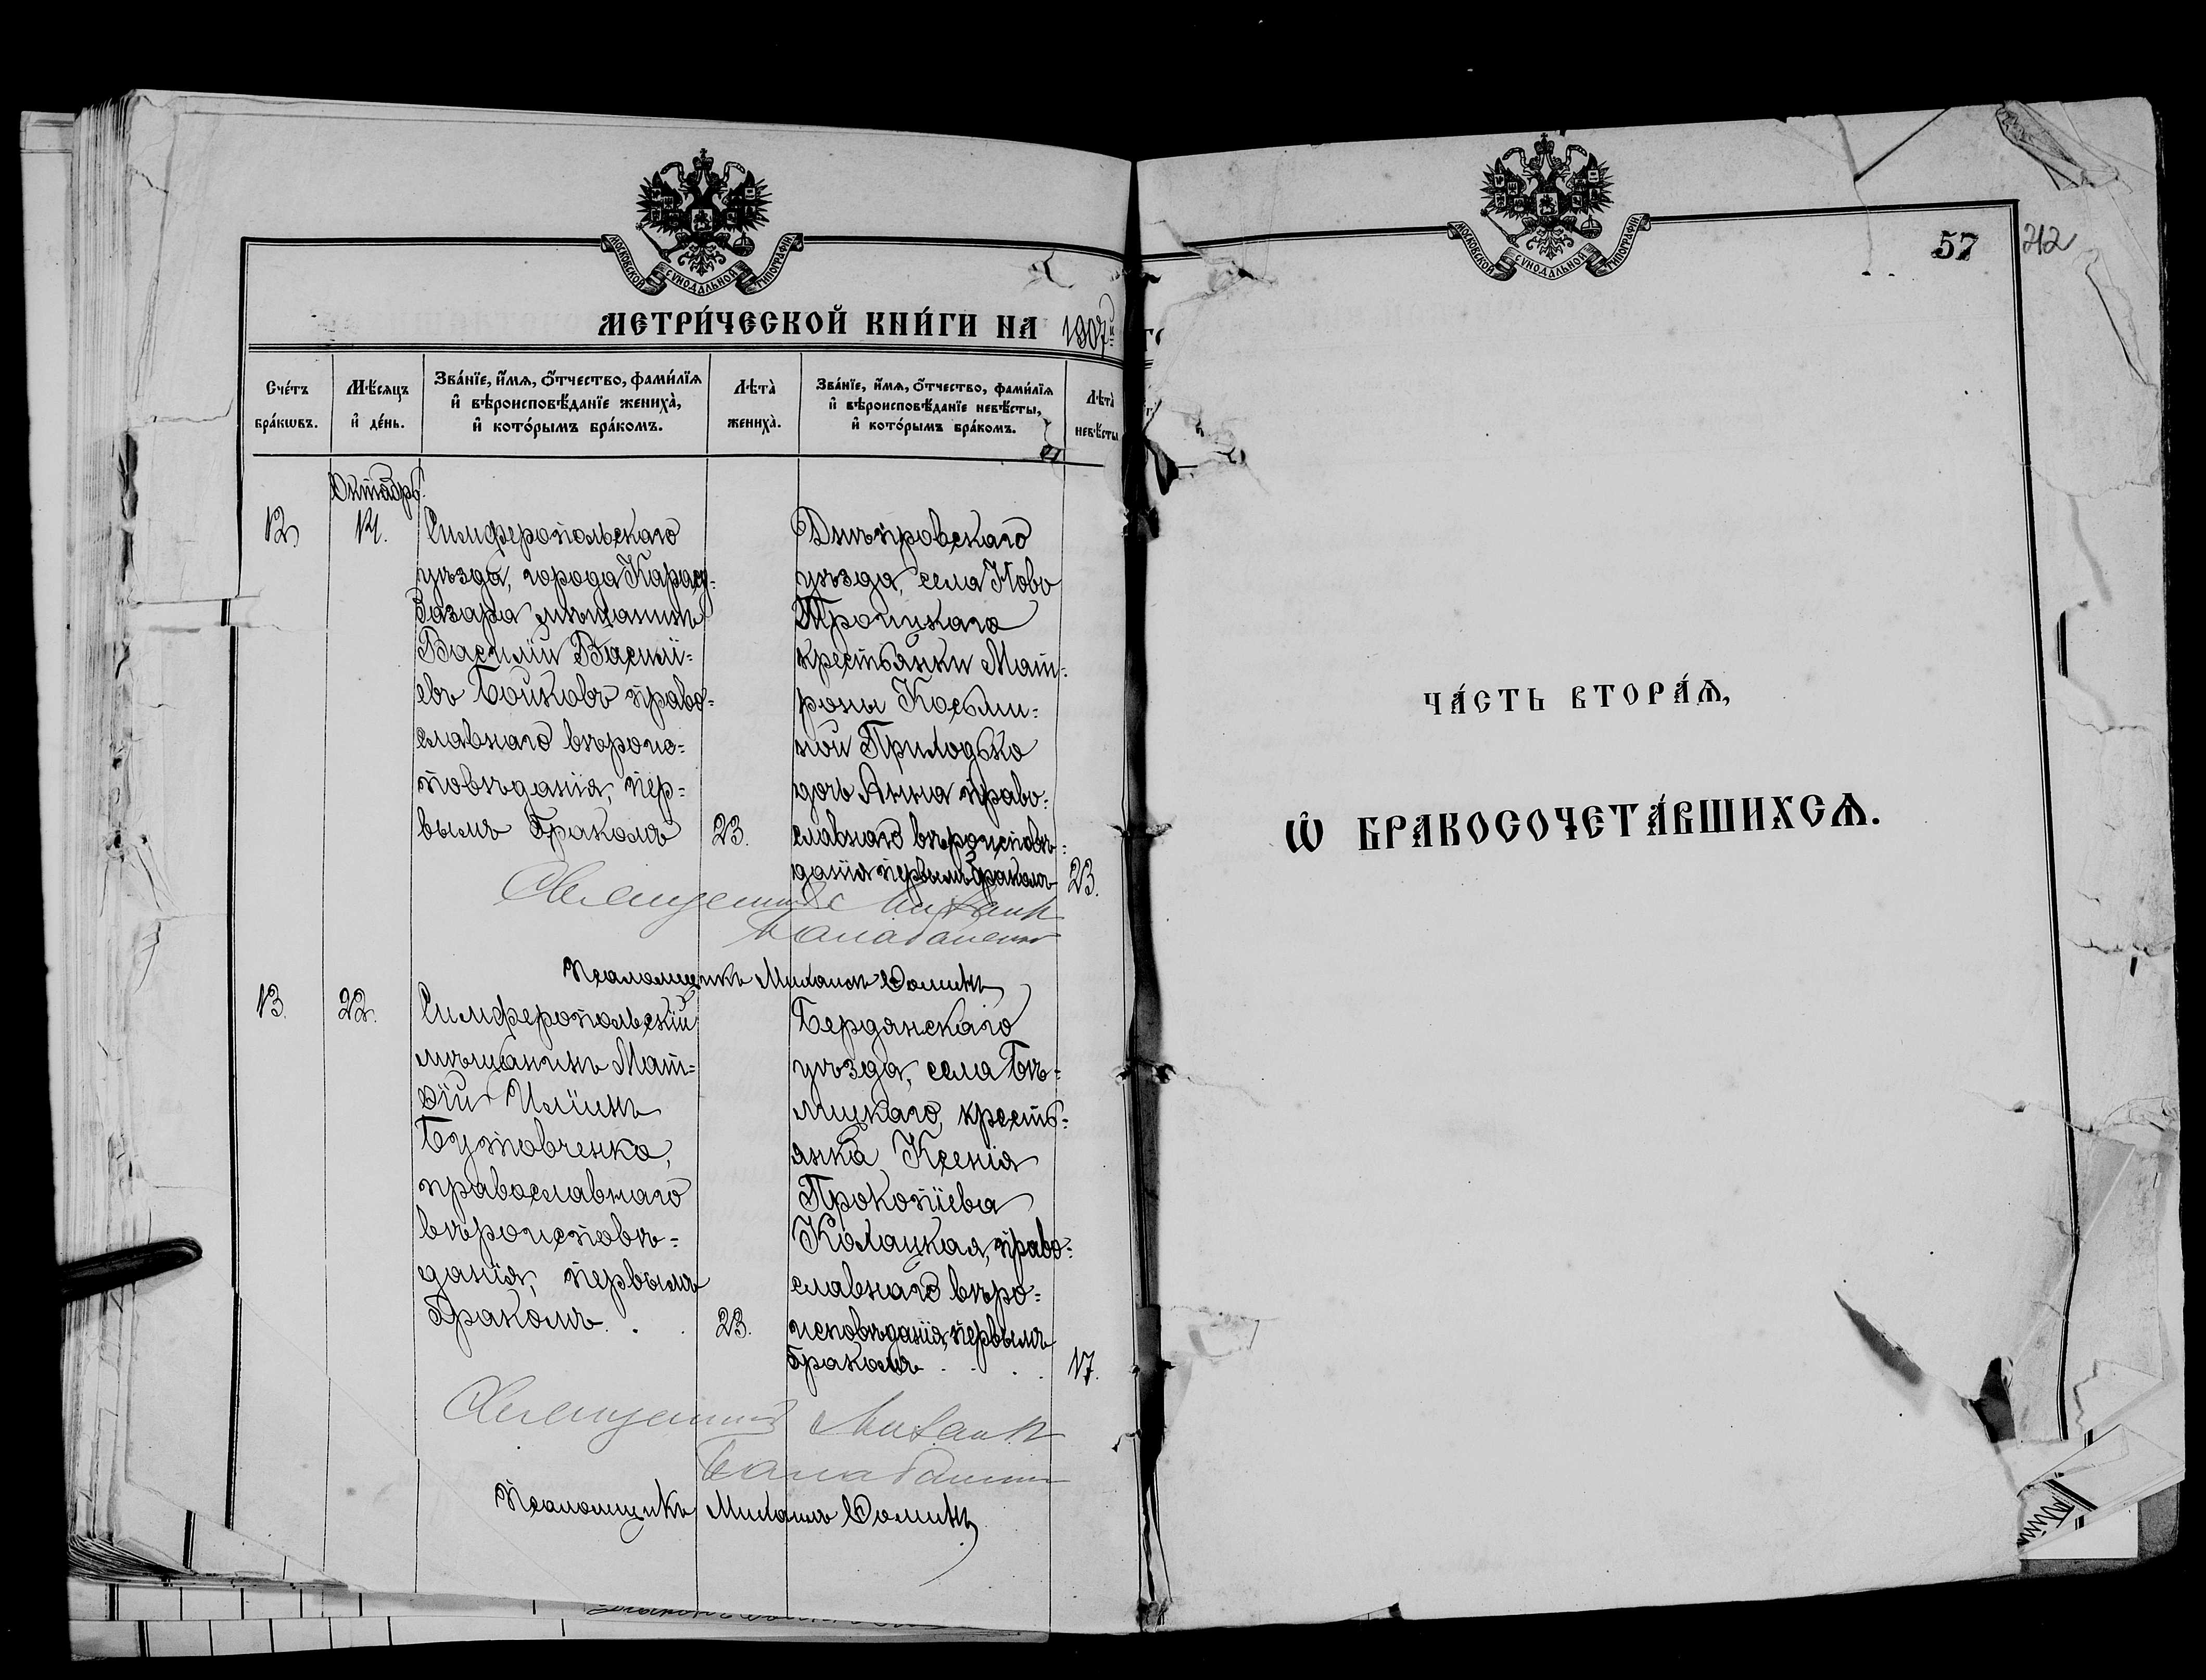 МОСКОВСКОЙ СѴНОДАЛЬНОЙ ТИПОГРАФІИ
МЕТРИ́ЧЕСКОЙ КНИ́ГИ НА 1907й
Сче́тъ бра́кωвъ.
Мѣ́сяцъ и҆ де́нь.
Зва́нїе, и҆́мѧ, ѻ҆́тчество, фами́лїѧ
и҆ вѣроисповѣ́данїе жениха̀,
и҆ кото́рымъ бра́комъ.
Лѣта̀ жениха̀.
Зва́нїе, и҆́мѧ, ѻ҆́тчество, фами́лїѧ
и҆ вѣроисповѣ́данїе невѣ́сты,
и҆ кото́рымъ бра́комъ.
Лѣта̀ невѣ́сты
Октябрь.
12
14.
Симферопольскаго
уѣзда, города Карасу=
базара мѣщанинъ
Василій Василі=
евъ Бойковъ право=
славнаго вѣроис=
повѣданія, пер=
вымъ бракомъ
23.
Днѣпровскаго
уѣзда, села Ново
Троицкаго
крестьянки Мат=
роны Косьми=
ной Приходько
дочь Анна право=
славнаго вѣроисповѣ=
данія первымъ бракомъ
23.
Священникъ Михаилъ
Балабаненко
Псаломщикъ Михаилъ Ѳоминъ
13.
22.
Симферопольскій
мѣщанинъ Мат=
ѳій Иліинъ
Бутовченко,
православнаго
вѣроисповѣ=
данія, первымъ
бракомъ. . .
23.
Бердянскаго
уѣзда, села Бѣ=
лицкаго, кресть=
янка Ксенія
Прокопіева
Колацкая, право=
славнаго вѣро=
исповѣданія, первымъ
бракомъ . . .
17.
Священникъ Михаилъ
Балабаненко
Псаломщикъ Михаилъ Ѳоминъ
МОСКОВСКОЙ СѴНОДАЛЬНОЙ ТИПОГРАФІИ
57
212
ЧА́СТЬ ВТОРА́Ѧ,
Ѽ БРАКОСОЧЕТА́ВШИХСѦ.